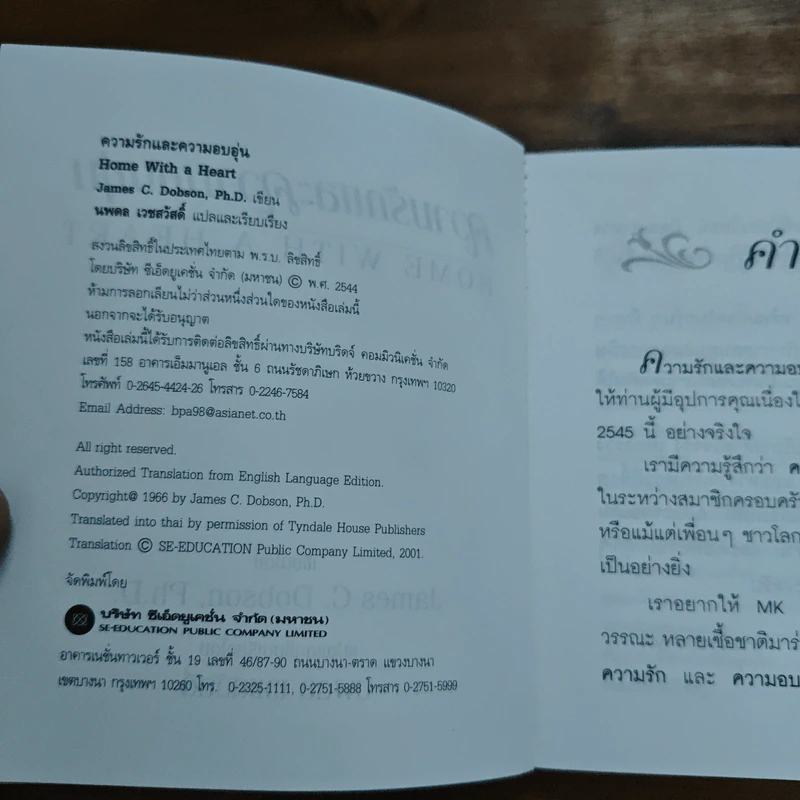 ความรักและความอบอุ่น
Home With a Heart
James C. Dobson, Ph.D. เขียน
นพดล เวชสวัสดิ์ แปลและเรียบเรียง
สงวนลิขสิทธิ์ในประเทศไทยตาม พ.ร.บ. ลิขสิทธิ์
โดยบริษัท ซีเอ็ดยูเคชั่น จำกัด (มหาชน) © พ.ศ. 2544
ห้ามการลอกเลียนไม่ว่าส่วนหนึ่งส่วนใดของหนังสือเล่มนี้
นอกจากจะได้รับอนุญาต
หนังสือเล่มนี้ได้รับการติดต่อลิขสิทธิ์ผ่านทางบริษัทบริดจ์ คอมมิวนิเคชั่น จำกัด
เลขที่ 158 อาคารเอ็มมานูเอล ชั้น 6 ถนนรัชดาภิเษก ห้วยขวาง กรุงเทพฯ 10320
โทรศัพท์ 0-2645-4424-26 โทรสาร 0-2246-7584
Email Address: bpa98@asianet.co.th
All right reserved.
Authorized Translation from English Language Edition.
Copyright@ 1966 by James C. Dobson, Ph.D.
Translated into thai by permission of Tyndale House Publishers
Translation © SE-EDUCATION Public Company Limited, 2001.
จัดพิมพ์โดย
บริษัท ซีเอ็ดยูเคชั่น จำกัด (มหาชน)
SE-EDUCATION PUBLIC COMPANY LIMITED
อาคารเนชั่นทาวเวอร์ ชั้น 19 เลขที่ 46/87-90 ถนนบางนา-ตราด แขวงบางนา
เขตบางนา กรุงเทพฯ 10260 โทร. 0-2325-1111, 0-2751-5888 โทรสาร 0-2751-5999
คำ
ความรักและความอบ
ให้ท่านผู้มีอุปการคุณเนื่องใ
2545 นี้ อย่างจริงใจ
เรามีความรู้สึกว่า ค
ในระหว่างสมาชิกครอบครัว
หรือแม้แต่เพื่อนๆ ชาวโลก
เป็นอย่างยิ่ง
เราอยากให้ MK
วรรณะ หลายเชื้อชาติมาร่
ความรัก และ ความอบ